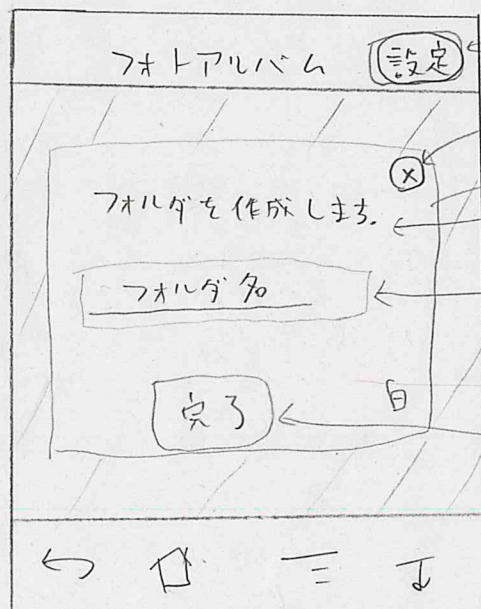 フォトアルバム 設定
×
フォルダを作成します。
フォルダ名
完了
白